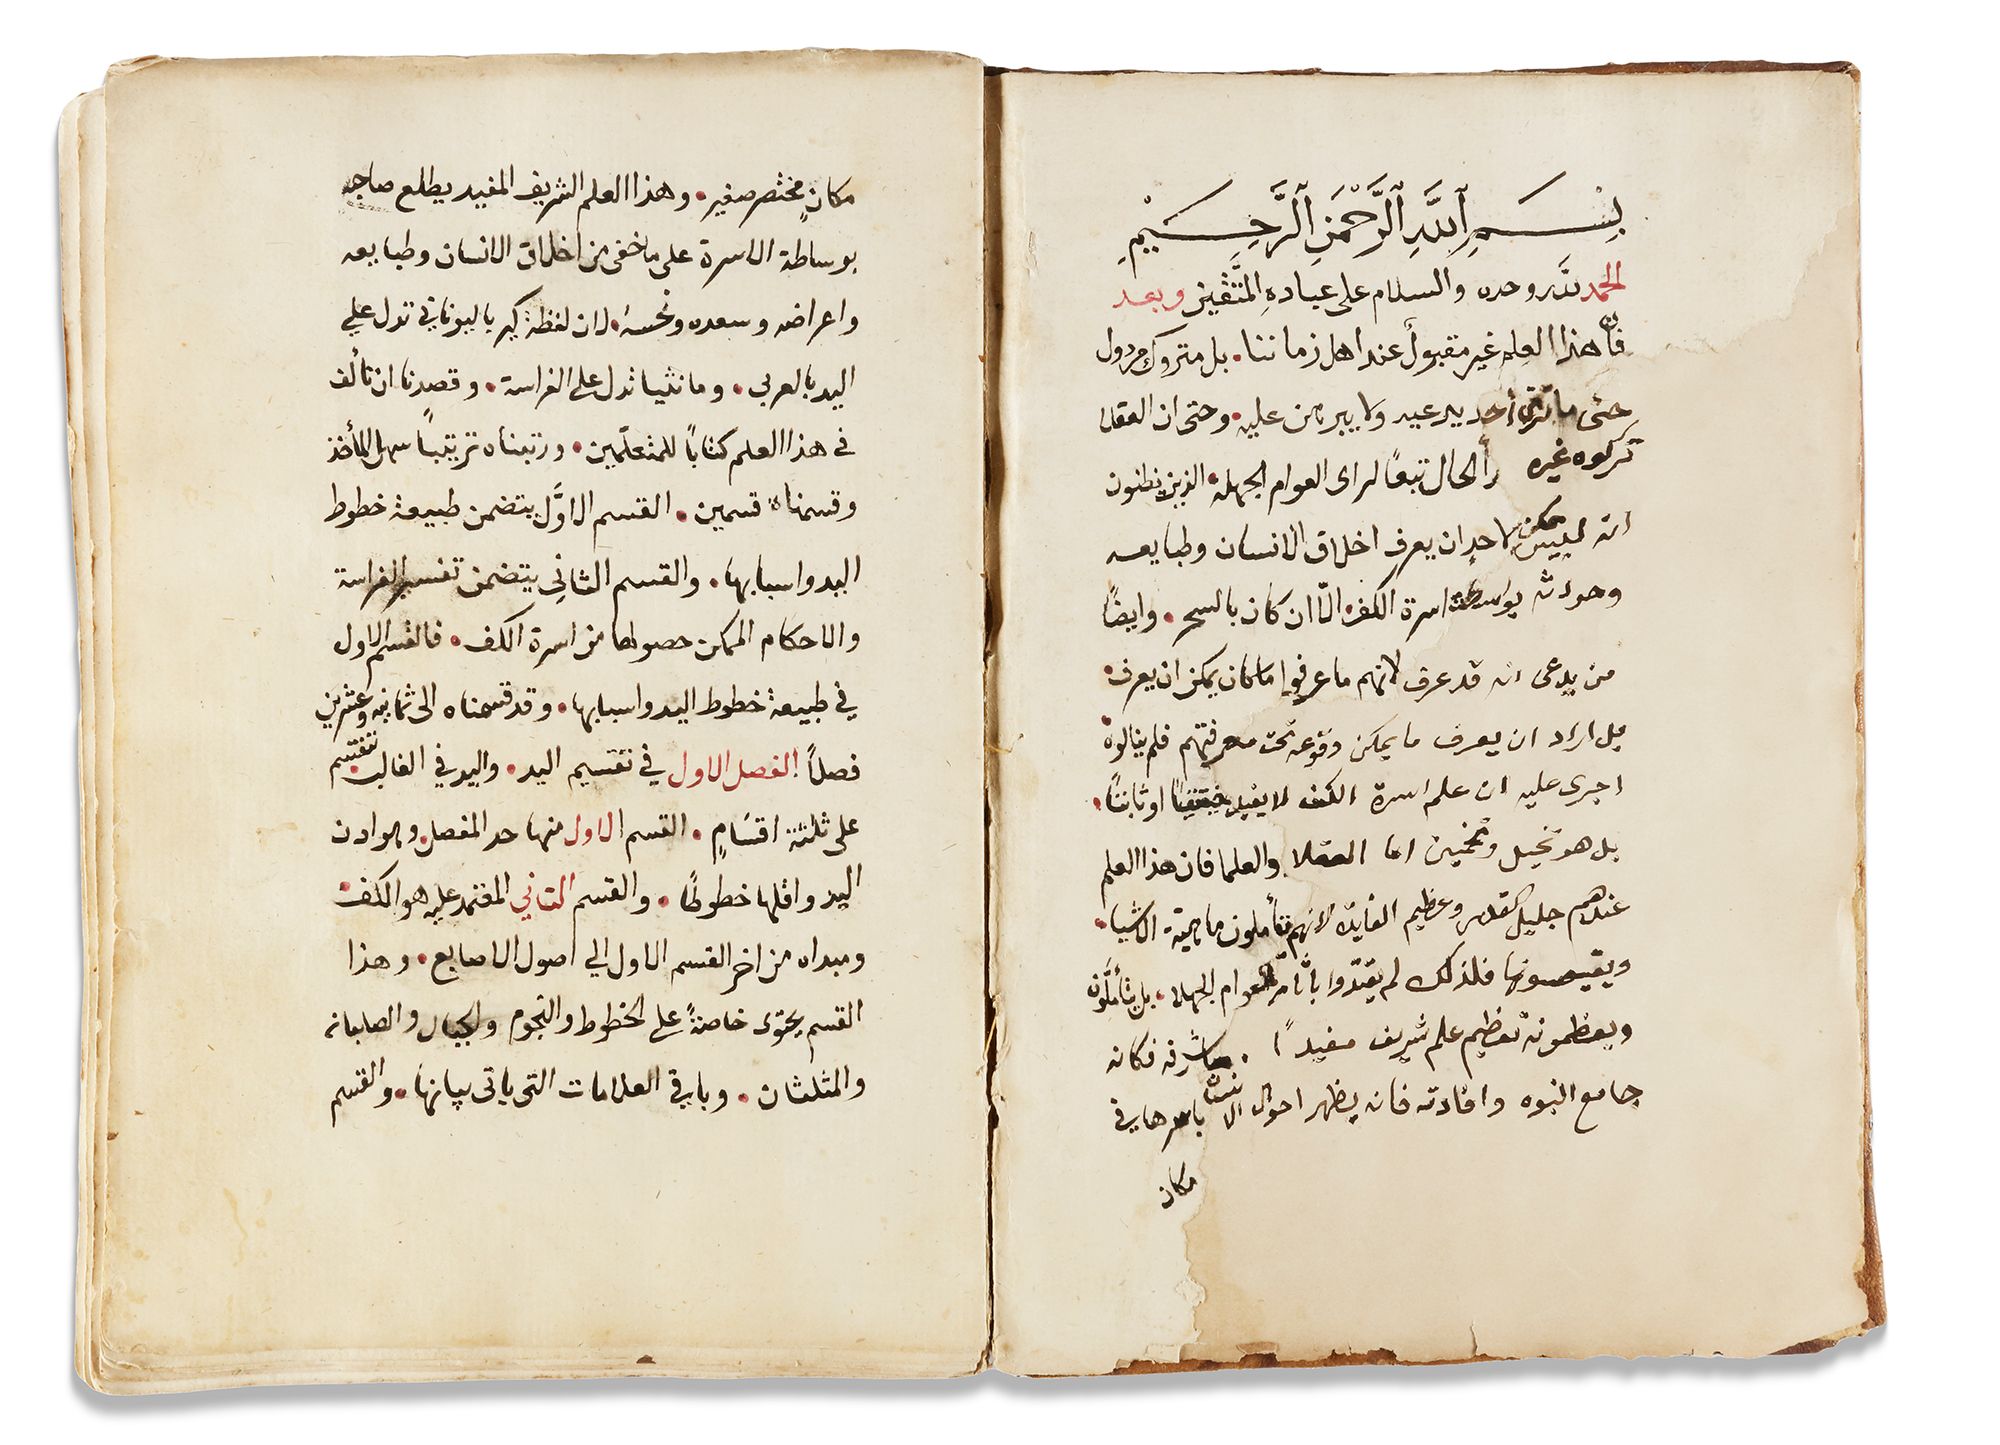 بِسْمِ ٱللَّهِ ٱلرَّحْمَنِ ٱلرَّحِيْمِ
الحمد لله وحده والسلام على عباده المتَّقين وبعد
فان هذا العلم غير مقبول عند اهل زماننا. بل متروك مردول
حتى ما احد يدعيه ولا يبرهن عليه. وحتى ان العقلا
تركوه غيره الحال تبعًا لراى العوام الجهله. الذين يظنون
انه ليس يمكن لاحد ان يعرف اخلاق الانسان وطبايعه
وحوادثه بواسطة اسرة الكف الّا ان كان بالسحر. وايضًا
من يدعى انه قد عرف لانهم ما عرفوا ما كان يمكن ان يعرف.
بل اراد ان يعرف ما يمكن وقوعه تحت معرفتهم فلم ينالوه
اجرى عليه ان علم اسرة الكف لا يفيد او ثابتًا.
بل هو تخيل وتخمين اما العقلا والعلما فان هذا العلم
عندهم جليل القدر وعظيم الفايده لانهم يتأملون ماهية الاشيا.
ويقيسونها فلذلك لم يقتدوا العوام الجهلا. بل يتأملونه
ويعظمونه تعظيم علم شريف مفيدًا. شرفه فكانه
جامع النبوه وافادته فانه يظهر احوال الانسان باسرها في
مكان
مكانٍ مختصر صغير. وهذا العلم الشريف المفيد يطلع صاحبه
بوساطة الاسرة على ما خفى من اخلاق الانسان وطبايعه
واعراضه وسعده ونحسه. لان لفظة كير باليوناني تدل علي
اليد بالعربي. ومانثيا تدل على الفراسة. وقصدنا ان نألف
في هذا العلم كتابًا للمتعلّمين. ورتبناه ترتيبًا سهل المأخذ
وقسمناه قسمين. القسم الاوَّل يتضمن طبيعة خطوط
اليد واسبابها. والقسم الثانى يتضمن تفسير الفراسة
والاحكام الممكن حصولها من اسرة الكف. فالقسم الاول
في طبيعة خطوط اليد واسبابها. وقد قسمناه الى ثمانيه وعشرين
فصلاً الفصل الاول في تقسيم اليد. واليد في الغالب تنقسم
على ثلثة اقسَامٍ. القسم الاول منها حد المفصل. وهو ادن
اليد واقلها خطوطًا. والقسم الثاني المعتمد عليه هو الكف.
ومبداه من اخر القسم الاول الي اصول الاصابع. وهذا
القسم يحتوى خاصةً على الخطوط والنجوم والجبال والصلبانه
والمثلثان. وباقي العلامات التى ياتى بيانها. والقسم